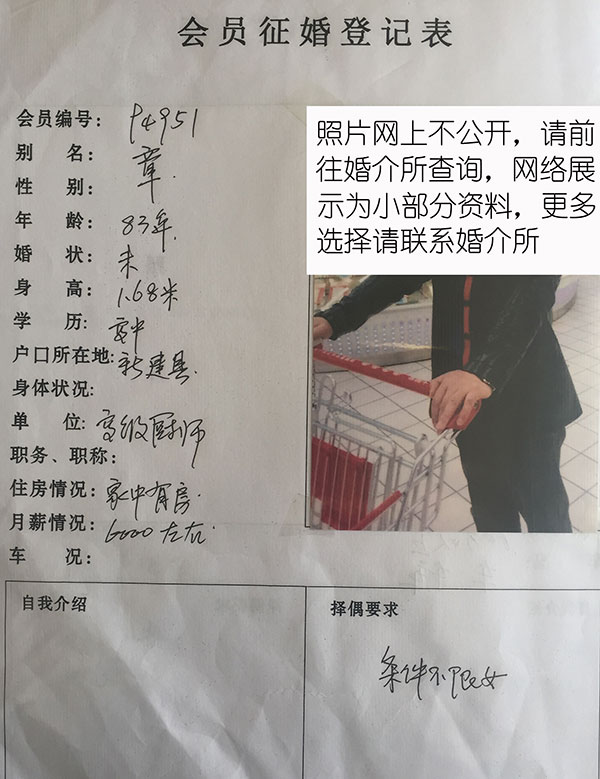 会员征婚登记表
会员编号：94951
别　名：章
性　别：
年　龄：83年.
婚　状：未
身　高：1.68米
学　历：高中
户口所在地：新建县.
身体状况：
单　位：高级厨师
职务、职称：
住房情况：家中有房.
月薪情况：6000左右.
车　况：
照片网上不公开，请前
往婚介所查询，网络展
示为小部分资料，更多
选择请联系婚介所
自我介绍
择偶要求
条件不限女